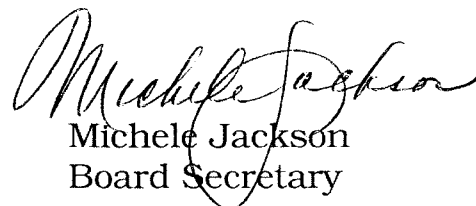 Michele Jackson
Michele Jackson
Board Secretary